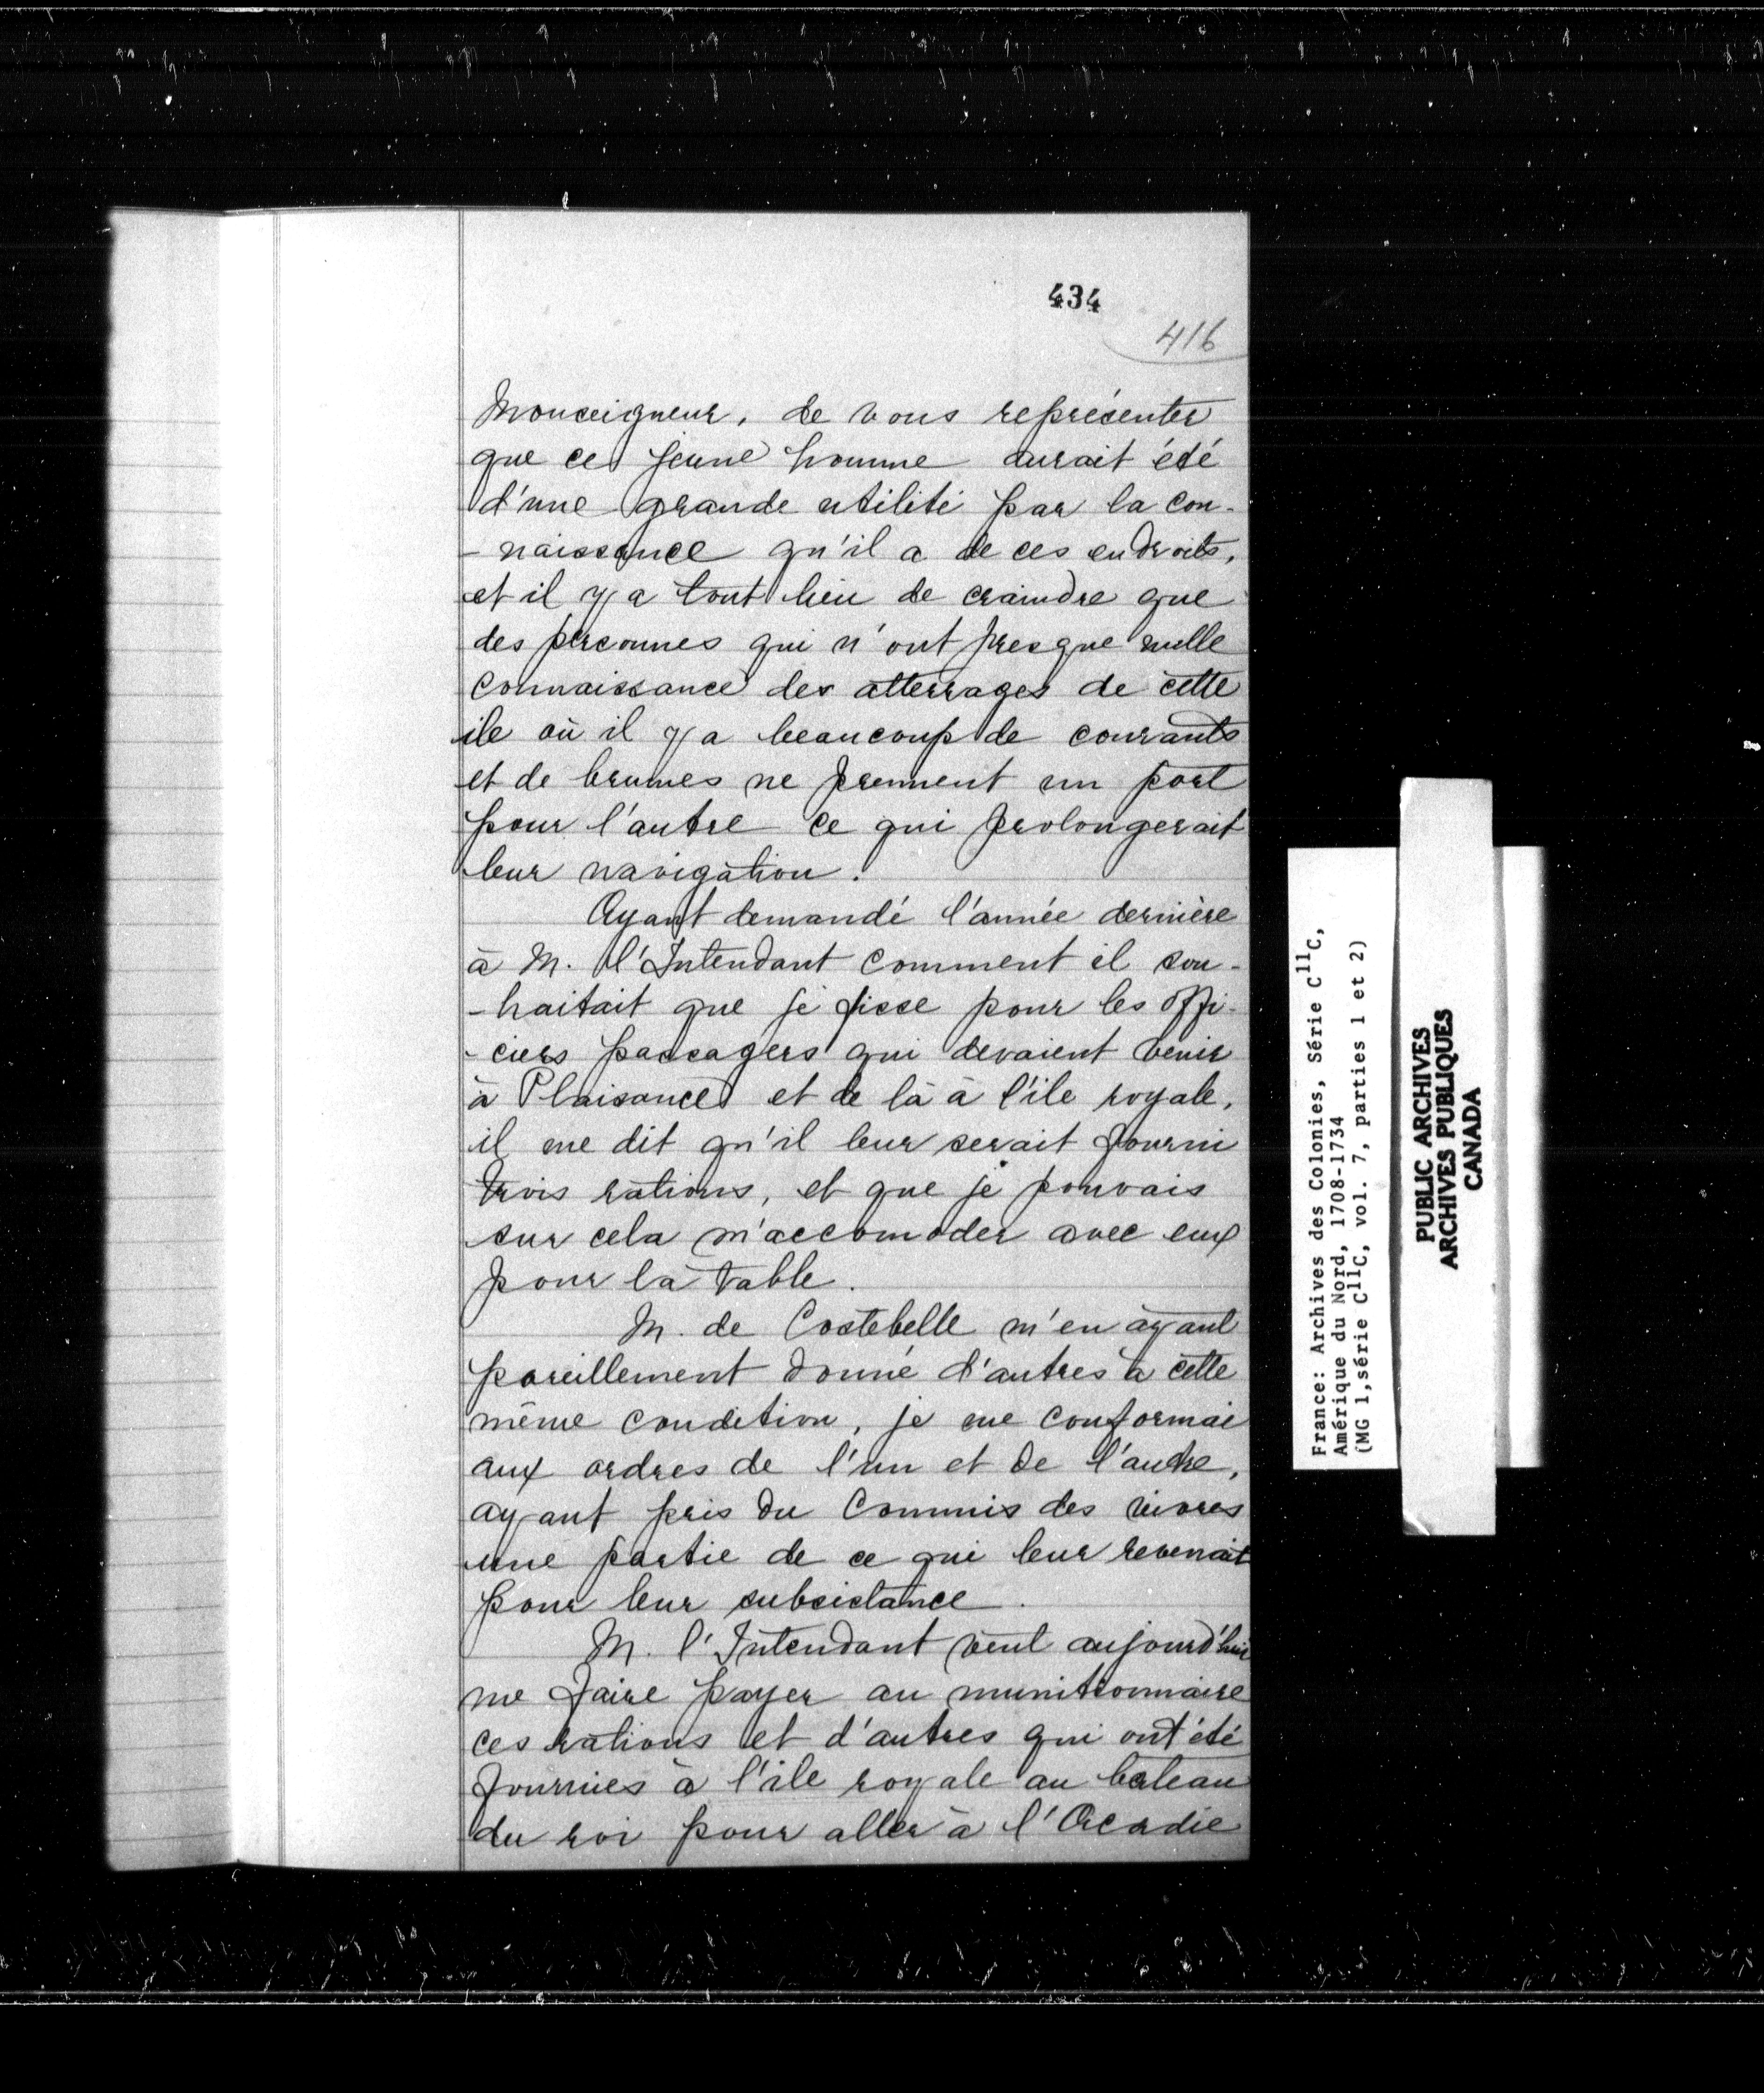 434
416
Monseigneur, de vous représenter
que ce jeune homme aurait été
d'une grande utilité par la con-
- naissance qu'il a de ces endroits,
et il y a tout lieu de craindre que
des personnes qui n'ont presque nulle
connaissance des atterrages de cette
ile où il y a beaucoup de courants
et de brumes ne prennent un port
pour l'autre ce qui prolongerait
leur navigation.
Ayant demandé l'année dernière
à M. l'Intendant comment il sou-
- haitait que je fisse pour les offi-
- ciers passagers qui devaient venir
à Plaisance et de là à l'ile royale,
il me dit qu'il leur serait fourni
trois rations, et que je pouvais
sur cela m'accomoder avec eux
pour la table.
M. de Costebelle m'en ayant
pareillement donné d'autres à cette
même condition, je me conformai
aux ordres de l'un et de l'autre,
ayant pris du Commis des vivres
une partie de ce qui leur revenait
pour leur subsistance.
M. l'Intendant veut aujourd'hui
me faire payer au munitionnaire
ces rations et d'autres qui ont été
fournies à l'ile royale au bateau
du roi pour aller à l'Acadie
France: Archives des Colonies, Série C11C,
Amérique du Nord, 1708-1734
(MG 1,série C11C, vol. 7, parties 1 et 2)
PUBLIC ARCHIVES
ARCHIVES PUBLIQUES
CANADA